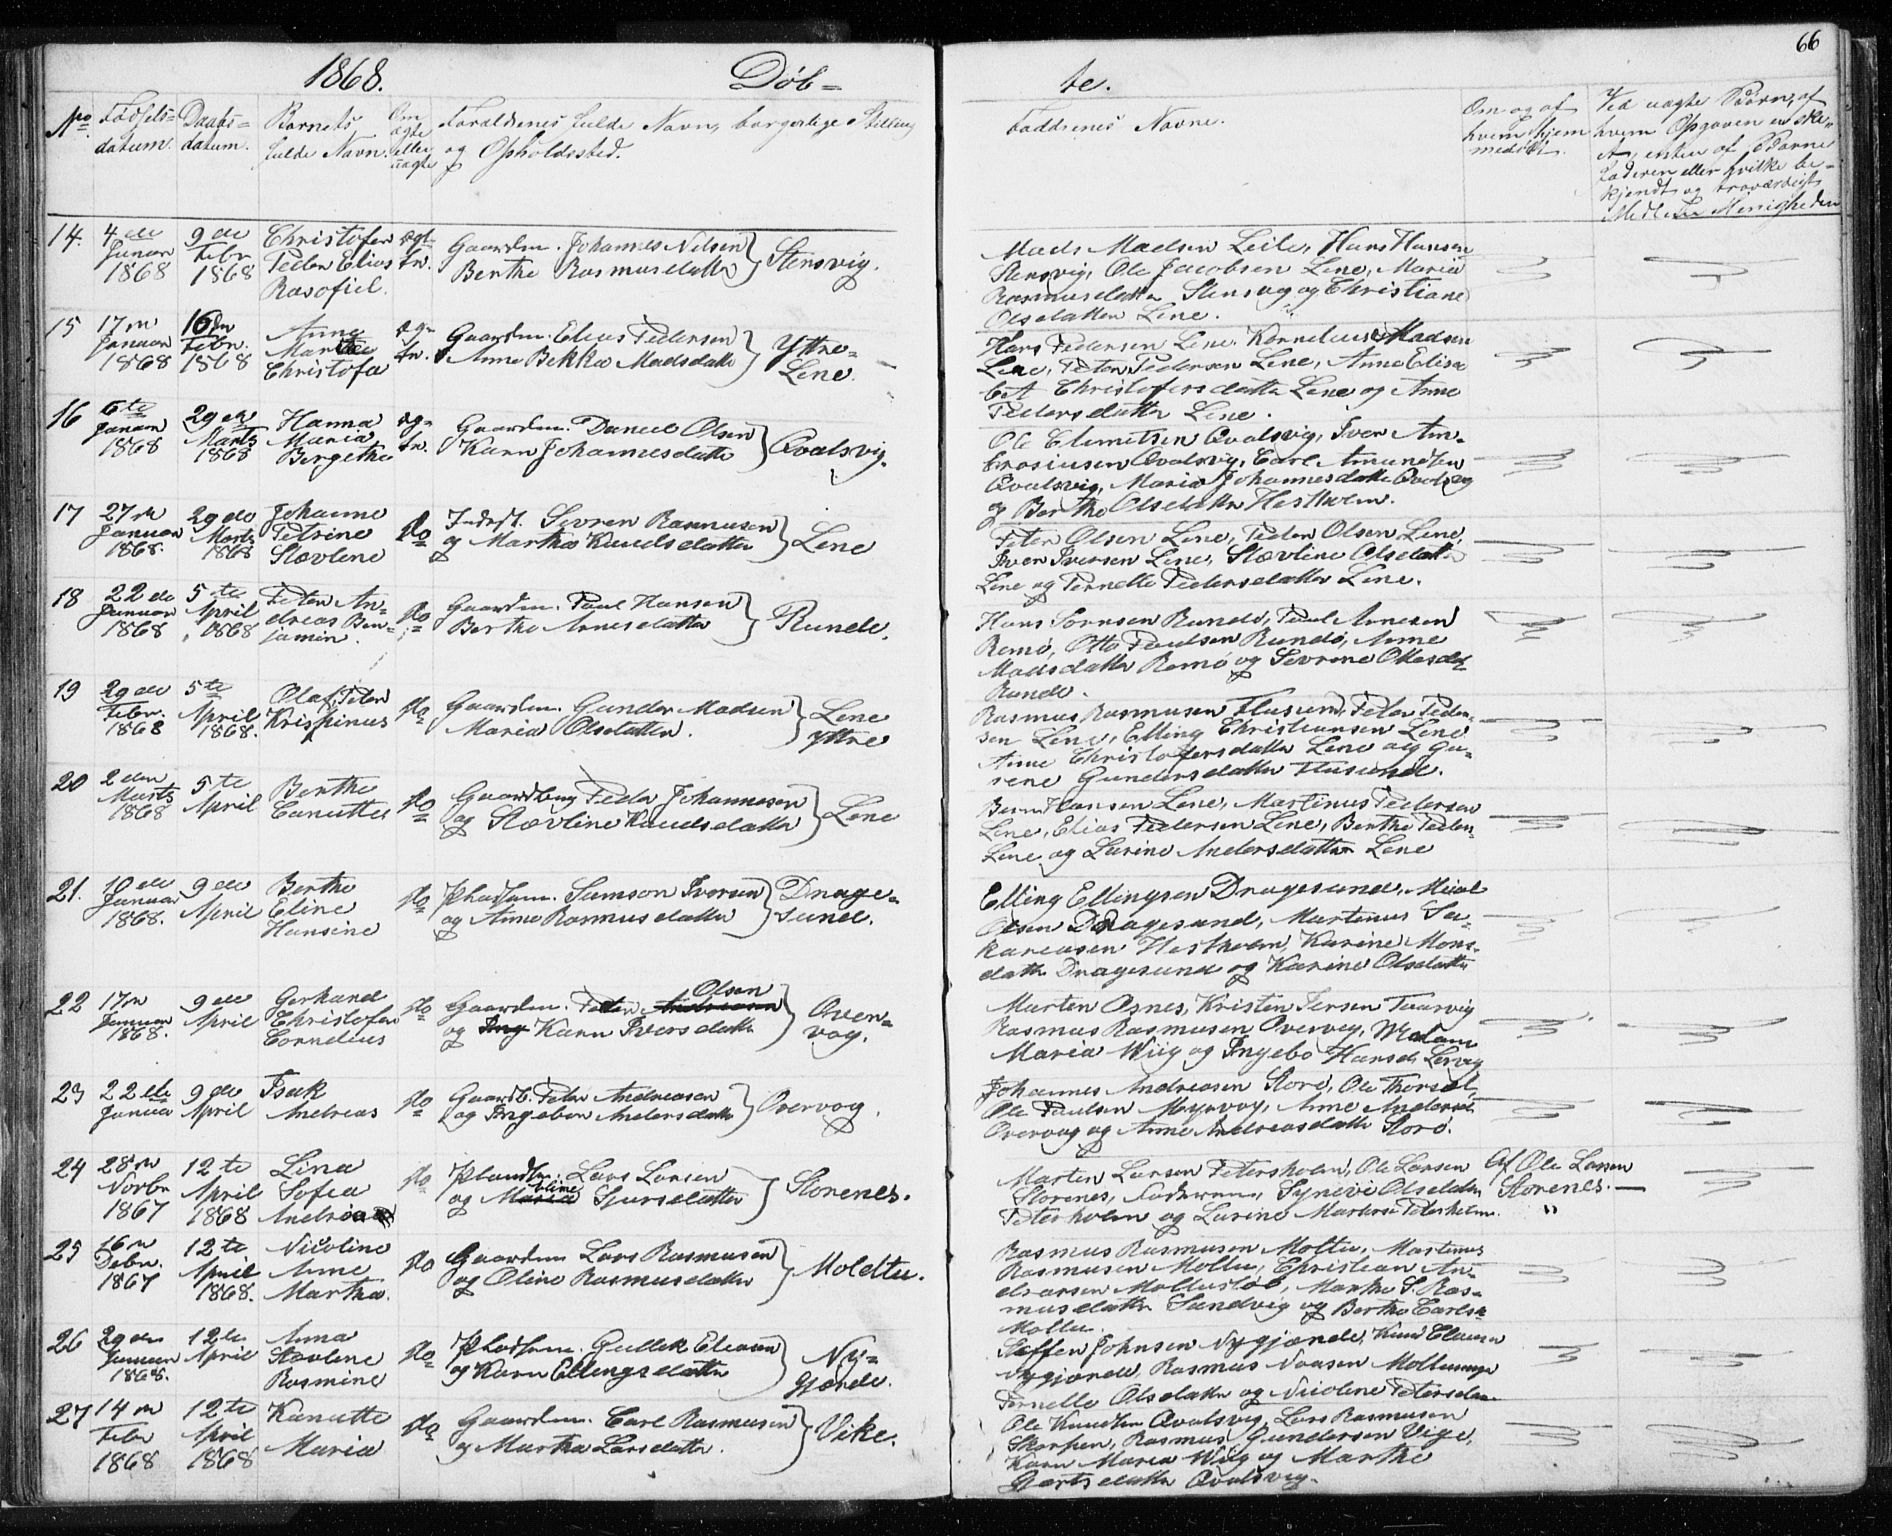 66
1868.
Døb-
te.
No.
Fødsels-
datum.
Daabs-
datum.
Barnets
fulde Navn.
Om
ægte
eller
uægte
Forældrenes fulde Navn, borgerlige Stilling
og Opholdssted.
Faddrenes Navne.
Om og af
hvem hjem
medøbt.
Ved uægte Børn, af
hvem Opgaven er ske-
et, enten af Barne
faderen eller hvilke be-
kjendt og troværdigt
Medl. Menigheden
14.
4de
Januar
1868
9de
Febr
1868
Christofer
Peder Elias
Rasofiel.
ægt-
Gaardm. Johannes Nilsen
Berthe Rasmusdatter
Stensvig.
Mads Madsen Leite, Hans Hansen
Stensvig, Ole Jacobsen Lene, Maria
Rasmusdatter Stensvig og Christiane
Olsdatter Lene.
15
17n
Januar
1868
16n
Febr.
1868
Anne
Marthe
Christofa
æg-
te.
Gaardm. Elias Pedersen
Anne Bekka Madsdatter
Yttre-
Lene.
Hans Pedersen Lene. Kornelius Madsen
Lene, Peter Pedersen Lene, Anne Elisa
bet Christofersdatter Lene og Anne
Pedersdatter Lene.
16
6te
Januar
1868
29de
Marts
1868
Hanna
Maria
Bergethe
æg-
te.
Gaardm. Daniel Olsen
Karn Johannesdatter
Qvalsvig.
Ole Clemitsen Qvalsvig, Iver Am-
brosiusen Qvalsvig, Carl Amundsen
Qvalsvig, Maria Johannesdatter Qvalsvig
og Berthe Olsdatter Hestholm.
17
27n
Januar
1868.
29de
Marts
1868
Johanne
Petrine
Stovline
do
Inderst. Sevren Rasmusen
og Marthe Knudsdatter
Lene
Peter Olsen Lene, Peder Olsen Lene,
Iver Iversen Lene, Stovline Olsdatter
Lene og Pernelle Pedersdatter Lene.
18
22de
Januar
1868
5te
April
1868
Peter An-
dreas Ben-
jamin.
do
Gaardm. Paul Hansen
Berthe Arnesdatter
Runde.
Hans Sørnsen Rundø, Paul Arnesen
Remø, Otto Paulsen Rundø, Anne
Madsdatter Remø og Sevrine Ottesdt
Runde.
19
29de
Febr.
1868
5te
April
1868.
Olaf Peter
Krispinus
do
Gaardm. Gunder Madsen
Maria Olsdatter.
Lene
yttre
Rasmus Rasmusen Flusund, Peder Peder-
sen Lene, Elling Christiansen Lene
Anne Christofersdatter Lene og Gu-
rene Gundersdatter Flusund.
20
2den
Marts
1868
5te
April
Berthe
Canutte
do
Gaardbrug Peder Johannesen
og Stovline Knudsdatter
Lene
Bernt Hansen Lene, Martinus Pedersen
Lene, Elias Pedersen Lene, Berthe Peder-
Lene og Lurine Andersdatter Lene
21.
10de
Januar
1868.
9de
April
Berthe
Eline
Hansine
do
Pladsm. Samson Iversen
og Anne Rasmusdatter
Drage-
sund.
Elling Ellingsen Dragesund, Mikal
Olsen Dragesund, Martinus Sa-
kariasen Hestholm, Karine Mons-
datter Dragesund og Karine Olsdatter
22
17n
Januar
1868.
9de
April
Gerhand
Christofer
Cornelius
do
Olsen
Gaardm. Peder Andreasen
og Ing Karn Iversdatter
Over-
vog.
Marten Osnes, Kristen Iersen Tvarvig
Rasmus Rasmusen Overvog, Madam
Maria Wiig og Ingebo Hansd. Lervig
23
22de
Janua
9de
April
Isak
Andreas
do
Gaardb. Peder Andreasen
og Ingebor Andersdatter
Overvog.
Johannes Andreasen Storø, Ole Thorsæt,
Ole Paulsen Myrvog, Anne Andersdt
Overvog og Anne Andreasdatter Storø.
24
28n
Novbr
1867
12te
April
1868
Lina
Sofia
Andrea
do
Pladsm. Lars Larsen
og Maria Sjursdatter
Storenes.
Marten Larsen Petersholm, Ole Larsen
Storenes, Synevi Olsdatter
Petersholm og Lurine Martens Petersholm.
Af Ole Larsen
Storenes.
25
16n
Debr.
1867
12te
April
1868.
Nicoline
Anne
Martha.
do
Gaardm Lars Rasmusen
og Oline Rasmusdatter
Moldtu.
Rasmus Rasmusen Moltu, Martinus
Rasmusen Moltu, Christian An-
dersen Moltustøl, Marthe S. Ras-
musdatter Sandvig og Berthe Carlsdt
Moltu.
26
29de
Januar
1868.
12te
April
Anna
Stovline
Rasmine
do
Pladsm. Gullek Eliasen
og Karn Ellingsdatter
Ny-
gjærde.
Steffen Johnsen Nygjærde, Knud Clausen
Nygjærde, Rasmus Moltumyr
Pernelle Olsdatter og Nicoline Petersdatter
27
14n
Febr
1868
12te
April
1868
Kanutte
Maria
do
Gaardm. Carl Rasmusen
og Martha Larsdatter.
Vike.
Ole Knudsen Qvalsvig, Lars Rasmusen
Skorpen, Rasmus Gundersen Vige,
Karn Maria Wiig og Marthe
Gjertsdatter Qvalsvig.